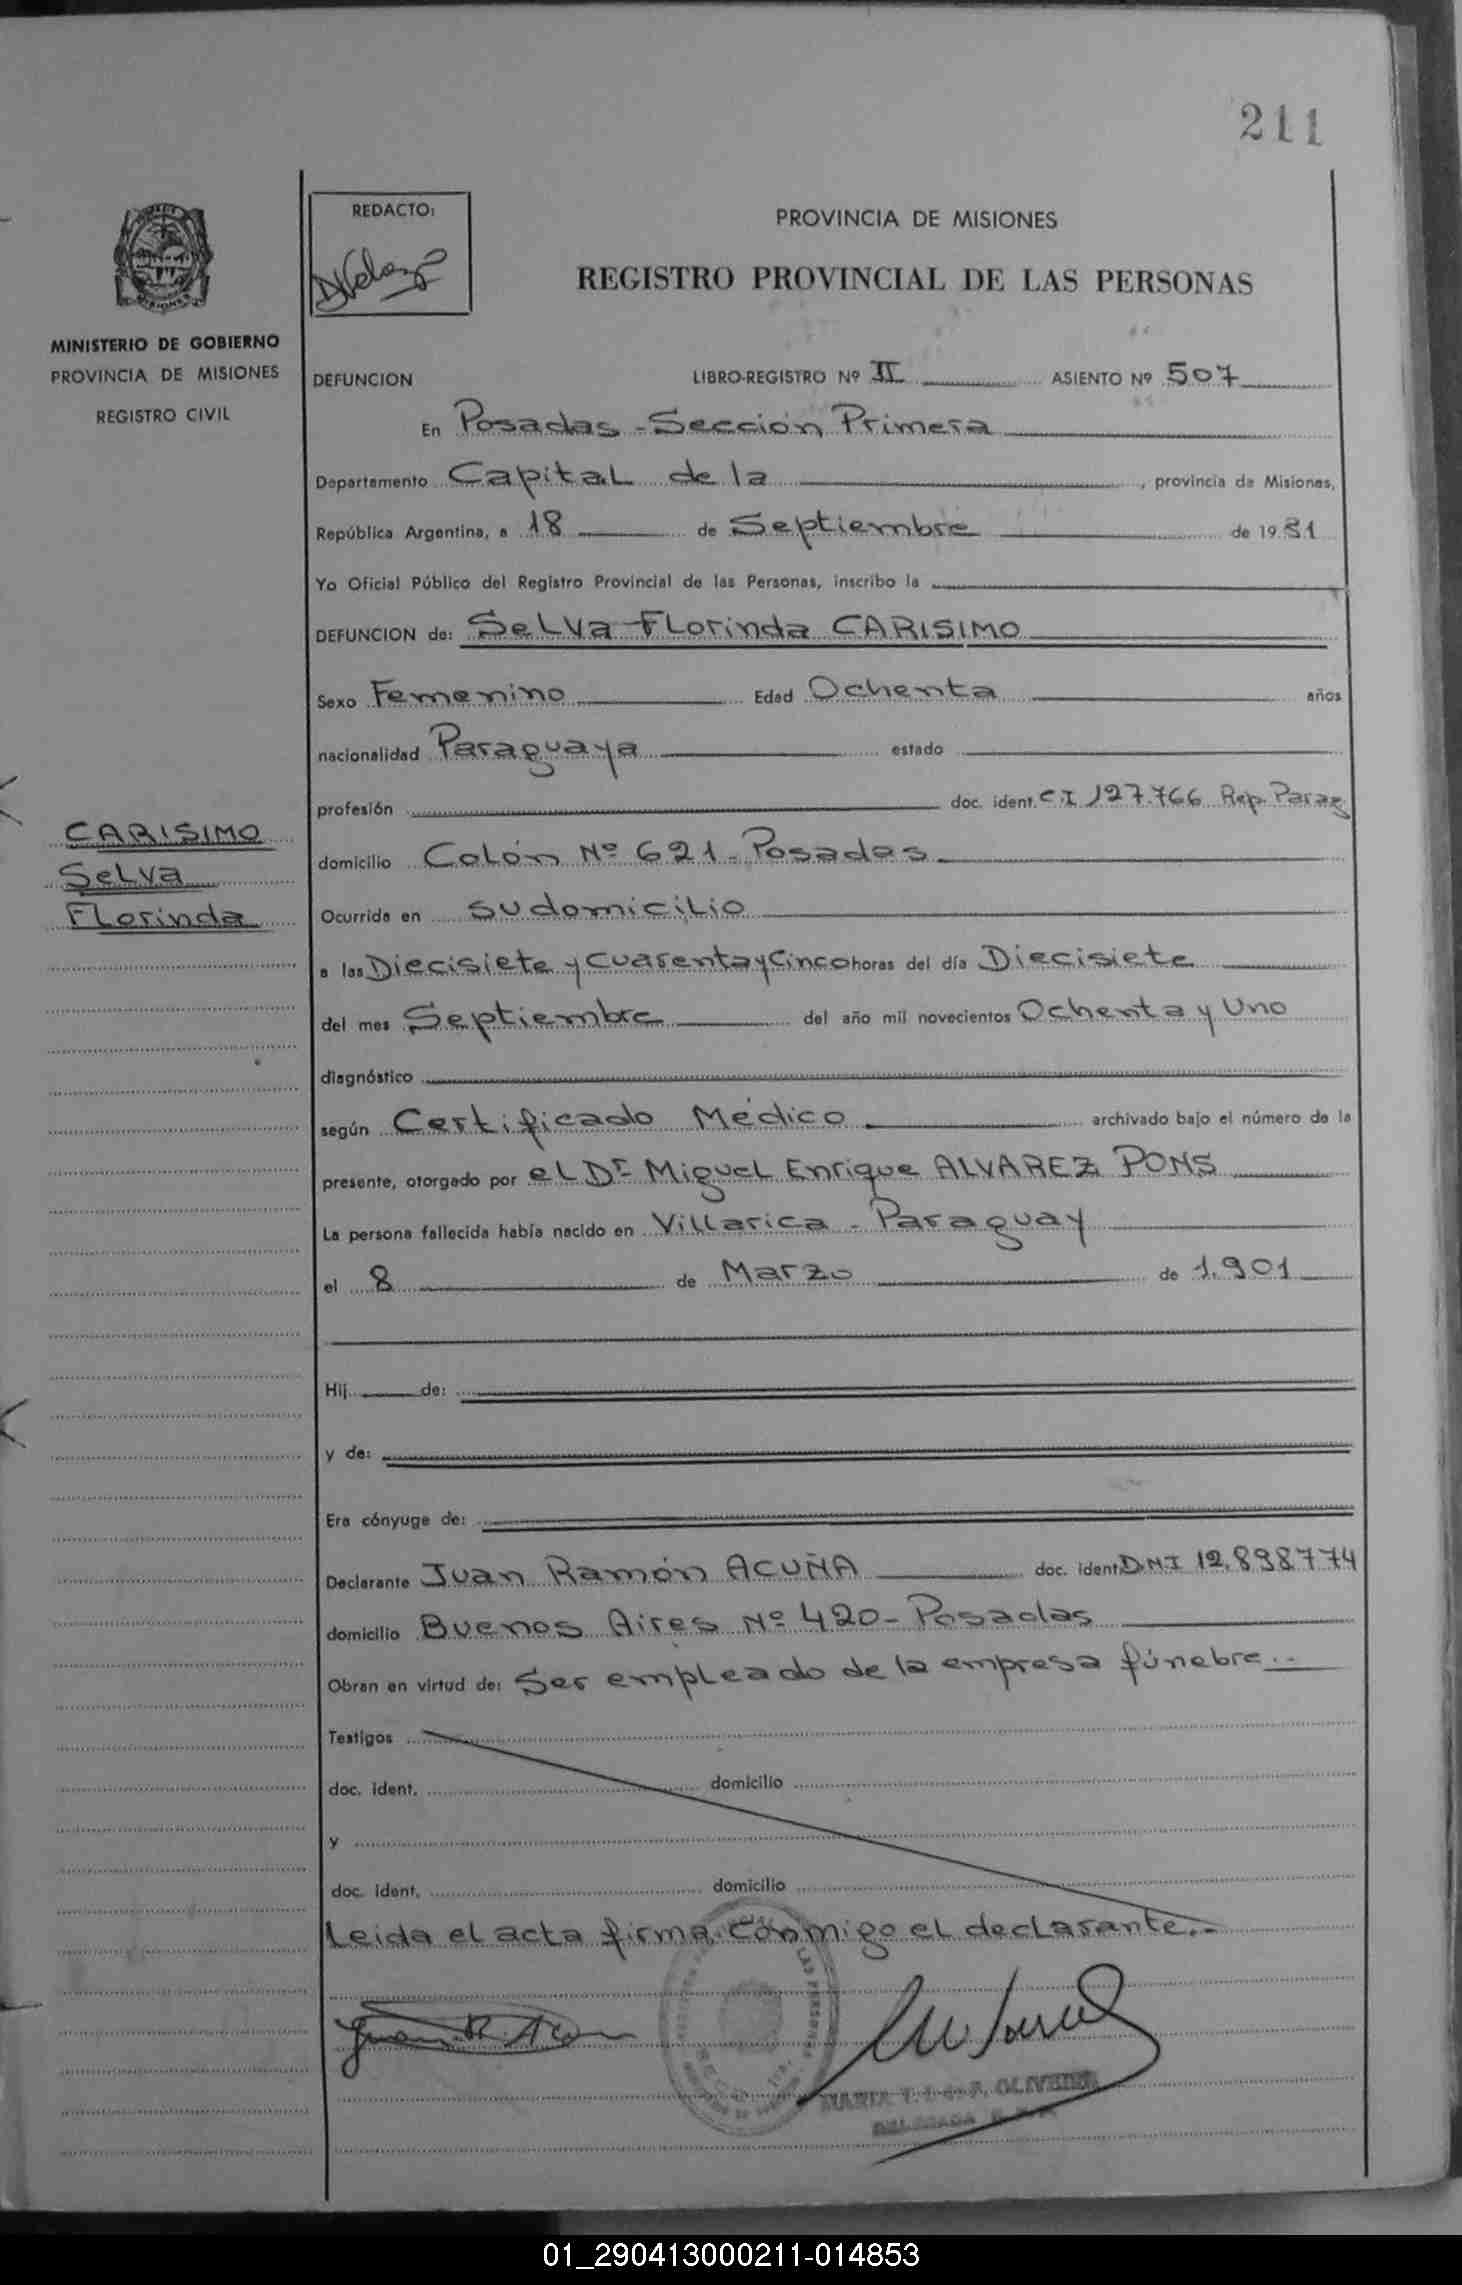 211
REDACTO:
PROVINCIA DE MISIONES
REGISTRO PROVINCIAL DE LAS PERSONAS
MISIONES
MINISTERIO DE GOBIERNO
PROVINCIA DE MISIONES
REGISTRO CIVIL
DEFUNCION LIBRO-REGISTRO Nº II ASIENTO Nº 507
En Posadas - Sección Primera
Departamento Capital de la , provincia de Misiones,
República Argentina, a 18 de Septiembre de 1981
Yo Oficial Público del Registro Provincial de las Personas, inscribo la
DEFUNCION de: Selva Florinda CARISIMO
Sexo Femenino Edad Ochenta años
nacionalidad Paraguaya estado
profesión doc. ident. C.I 127.766 Rep. Parag
CARISIMO
Selva
Florinda
domicilio Colón Nº 621 - Posadas
Ocurrida en su domicilio
a las Diecisiete y Cuarenta y Cinco horas del día Diecisiete
del mes Septiembre del año mil novecientos Ochenta y Uno
diagnóstico
según Certificado Médico archivado bajo el número de la
presente, otorgado por el Dr Miguel Enrique ALVAREZ PONS
La persona fallecida había nacido en Villarica - Paraguay
el 8 de Marzo de 1.901
Hij de:
y de:
Era cónyuge de:
Declarante Juan Ramón ACUÑA doc. ident. D.N.I 12.898774
domicilio Buenos Aires Nº 420 - Posadas
Obran en virtud de: Ser empleado de la empresa fúnebre.-
Testigos
doc. ident. domicilio
y
doc. ident. domicilio
Leida el acta firma conmigo el declarante.-
MARIA OLIVEIRA
DELEGADA
01_290413000211-014853